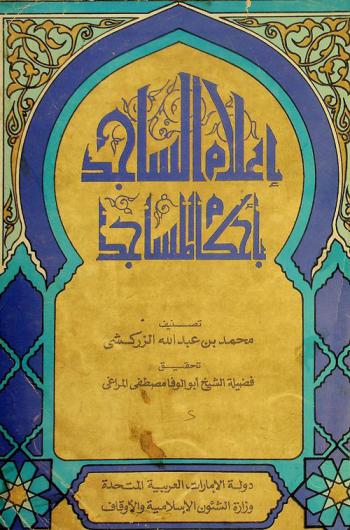 إعلام الساجد
بأحكام المساجد
تصنيف
محمد بن عبد الله الزركشى
تحقيق
فضيلة الشيخ أبو الوفا مصطفى المراغى
دولة الإمارات العربية المتحدة
وزارة الشئون الإسلامية والأوقاف